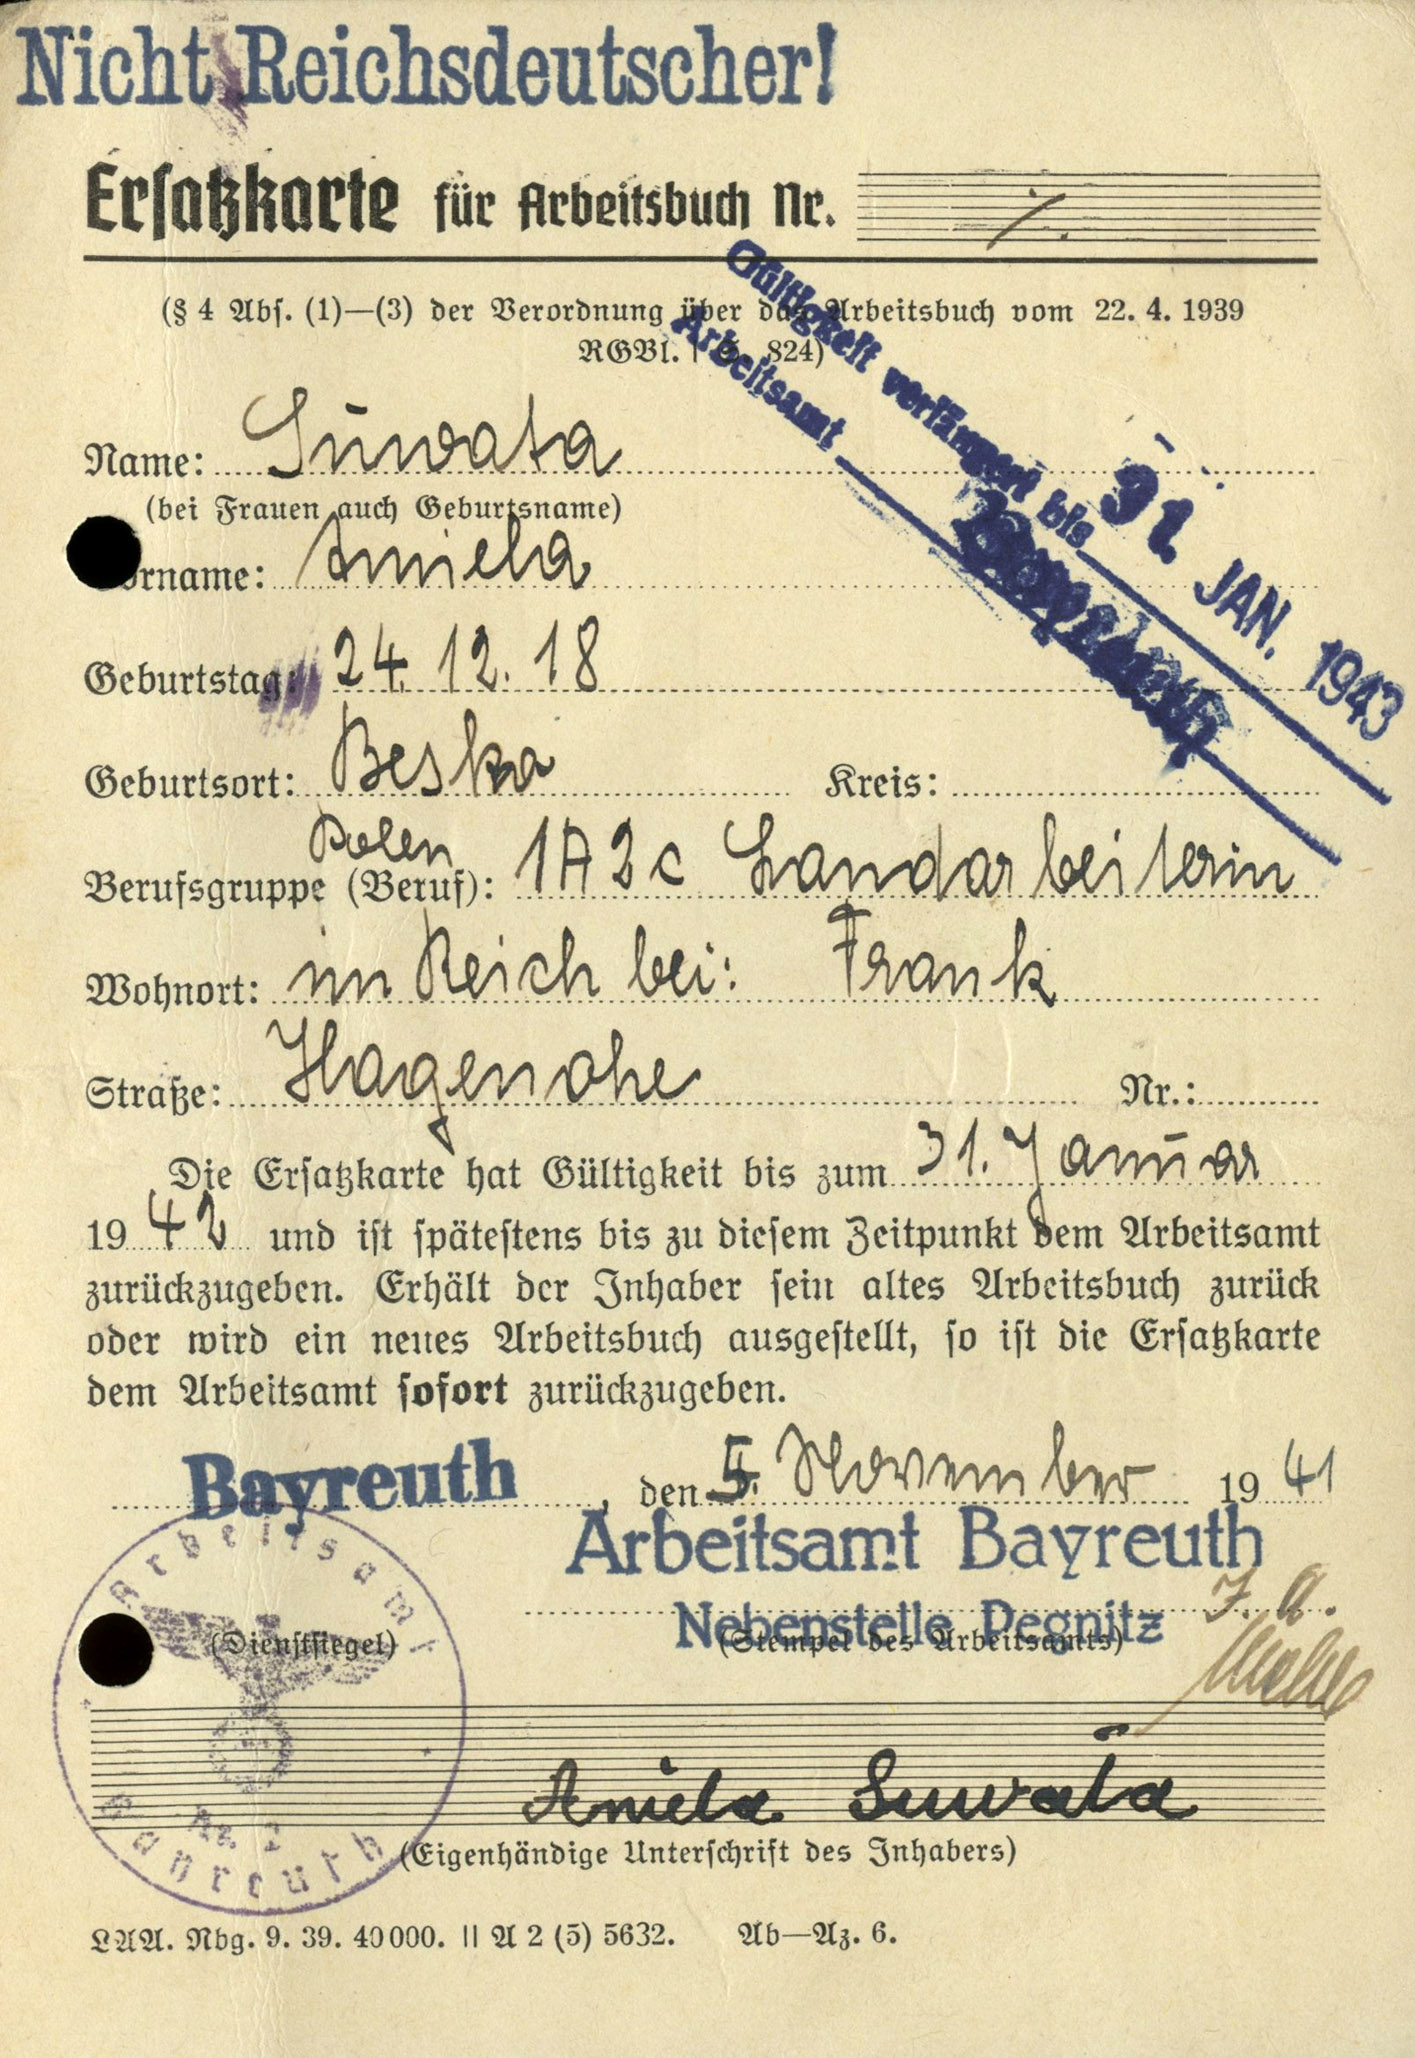 Nicht Reichsdeutscher!
Ersatzkarte für Arbeitsbuch Nr. ⁒
(§ 4 Abs. (1)—(3) der Verordnung über das Arbeitsbuch vom 22. 4. 1939
RGBl. I S. 824)
Gültigkeit verlängert bis 31. JAN. 1943
Arbeitsamt
Name: Suwata
(bei Frauen auch Geburtsname)
orname: Aniela
Geburtstag: 24. 12. 18
Geburtsort: Beska Kreis:
Polen
Berufsgruppe (Beruf): 1A2c Landarbeiterin
Wohnort: im Reich bei: Frank
Straße: Hagenohe Nr.:
Die Ersatzkarte hat Gültigkeit bis zum 31. Januar
1942 und ist spätestens bis zu diesem Zeitpunkt dem Arbeitsamt
zurückzugeben. Erhält der Inhaber sein altes Arbeitsbuch zurück
oder wird ein neues Arbeitsbuch ausgestellt, so ist die Ersatzkarte
dem Arbeitsamt sofort zurückzugeben.
Bayreuth, den 5. November 1941
Arbeitsamt Bayreuth
Nebenstelle Pegnitz
J. A.
(Dienstsiegel) (Stempel des Arbeitsamts)
Arbeitsamt
Bayreuth
Aniela Suwała
(Eigenhändige Unterschrift des Inhabers)
LAA. Nbg. 9. 39. 40000. II A 2 (5) 5632. Ab—Az. 6.